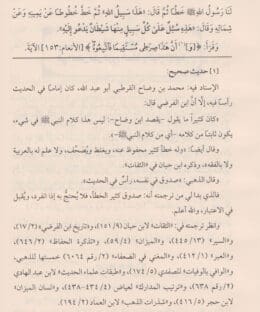 لَنَا رَسُولُ اللهِ ﷺ خَطًّا ثُمَّ قَالَ: «هَذَا سَبِيلُ اللهِ» ثُمَّ خَطَّ خُطُوطًا عَنْ يَمِينِهِ وَعَنْ
شِمَالِهِ وَقَالَ: «هَذِهِ سُبُلٌ عَلَى كُلِّ سَبِيلٍ مِنْهَا شَيْطَانٌ يَدْعُو إِلَيْهِ».
وَقَرَأَ: ﴿وَأَنَّ هَذَا صِرَاطِي مُسْتَقِيمًا فَاتَّبِعُوهُ﴾ [الأنعام: ١٥٣] الآيَةَ.
[١] حديث صحيح:
الإسناد فيه: محمد بن وضاح القرطبي أبو عبد الله، كان إمامًا في الحديث
رأسًا فيه، إلَّا أنَّ ابن الفرضي قال:
كان كثيرًا ما يقول -يقصد ابن وضاح-: ليس هذا من كلام النبي ﷺ في شيء،
يكون ثابتًا من كلامه -أي من كلام النبي ﷺ-.
وقال أيضًا: «وله خطأ كثير محفوظ عنه، ويغلط ويُصَحِّف، ولا علم له بالعربية
ولا بالفقه»، وذكره ابن حبان في «الثقات».
وقال الذهبي: «صدوق في نفسه، رأسٌ في الحديث».
فالذي بدا لي من ترجمته أنه: صدوق كثير الخطأ، فلا يُحتجُّ به إذا انفرد، ويُقبل
في الاعتبار، والله أعلم.
وانظر ترجمته في: «الثقات» لابن حبان (١٥١/٩)، و«تاريخ ابن الفرضي» (١٧/٢)،
و«السير» (٤٤٥/١٣)، و«الميزان» (٥٩/٤)، و«تذكرة الحفاظ» (٦٤٦/٢)،
و«العبر» (٤١٢/١)، و«المغني في الضعفاء» (٢/ رقم ٦٠٦٤) خمستها للذهبي،
و«الوافي بالوفيات» للصفدي (١٧٤/٥)، و«طبقات علماء الحديث» لابن عبد الهادي
(٢/ رقم ٦٣٨)، و«ترتيب المدارك» لعياض (٤٣٤/٤-٤٣٨)، و«لسان الميزان»
لابن حجر (٤١٦/٥)، و«شذرات الذهب» لابن العماد (١٩٤/٢).